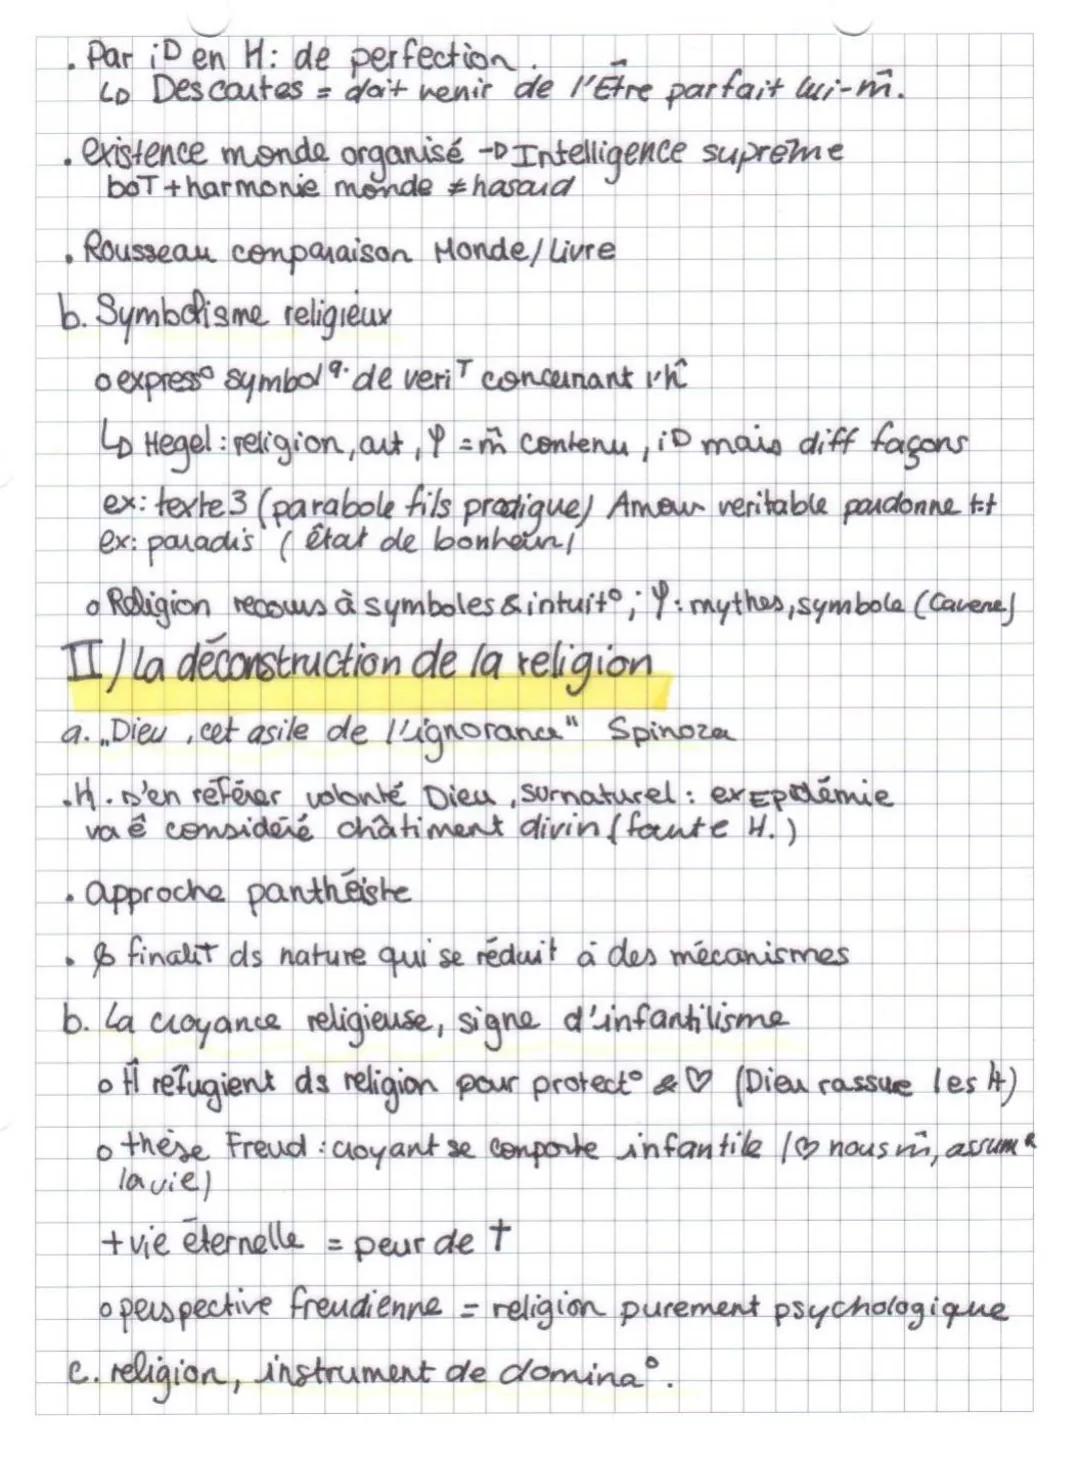 . Par iD en H: de perfection.
↳ Descartes = doit venir de l'Être parfait lui-m̂.
. existence monde organisé → Intelligence suprême
boT + harmonie monde ≠ hasard
. Rousseau comparaison Monde/Livre
b. Symbolisme religieux
o express° symbol q. de veriT concernant l'ĥ
↳ Hegel : religion, art, φ = m̂ contenu, iD mais diff façons
ex: texte 3 (parabole fils prodigue) Amour veritable pardonne t:t
ex: paradis (état de bonheur)
o Religion recours à symboles & intuit° ; φ : mythes, symbole (Caverne)
II/ La déconstruction de la religion
a. „Dieu, cet asile de l'ignorance" Spinoza
. H. s'en référer volonté Dieu, surnaturel : ex Epidémie
va ê considéré châtiment divin (faute H.)
. approche panthéiste
. finaliT ds nature qui se réduit à des mécanismes
b. La croyance religieuse, signe d'infantilisme
o H réfugient ds religion pour protect° & ♡ (Dieu rassure les H)
o thèse Freud : croyant se comporte infantile (♡ nous m̂, assum R
la vie)
+ vie éternelle = peur de †
o perspective freudienne = religion purement psychologique
c. religion, instrument de domina°.